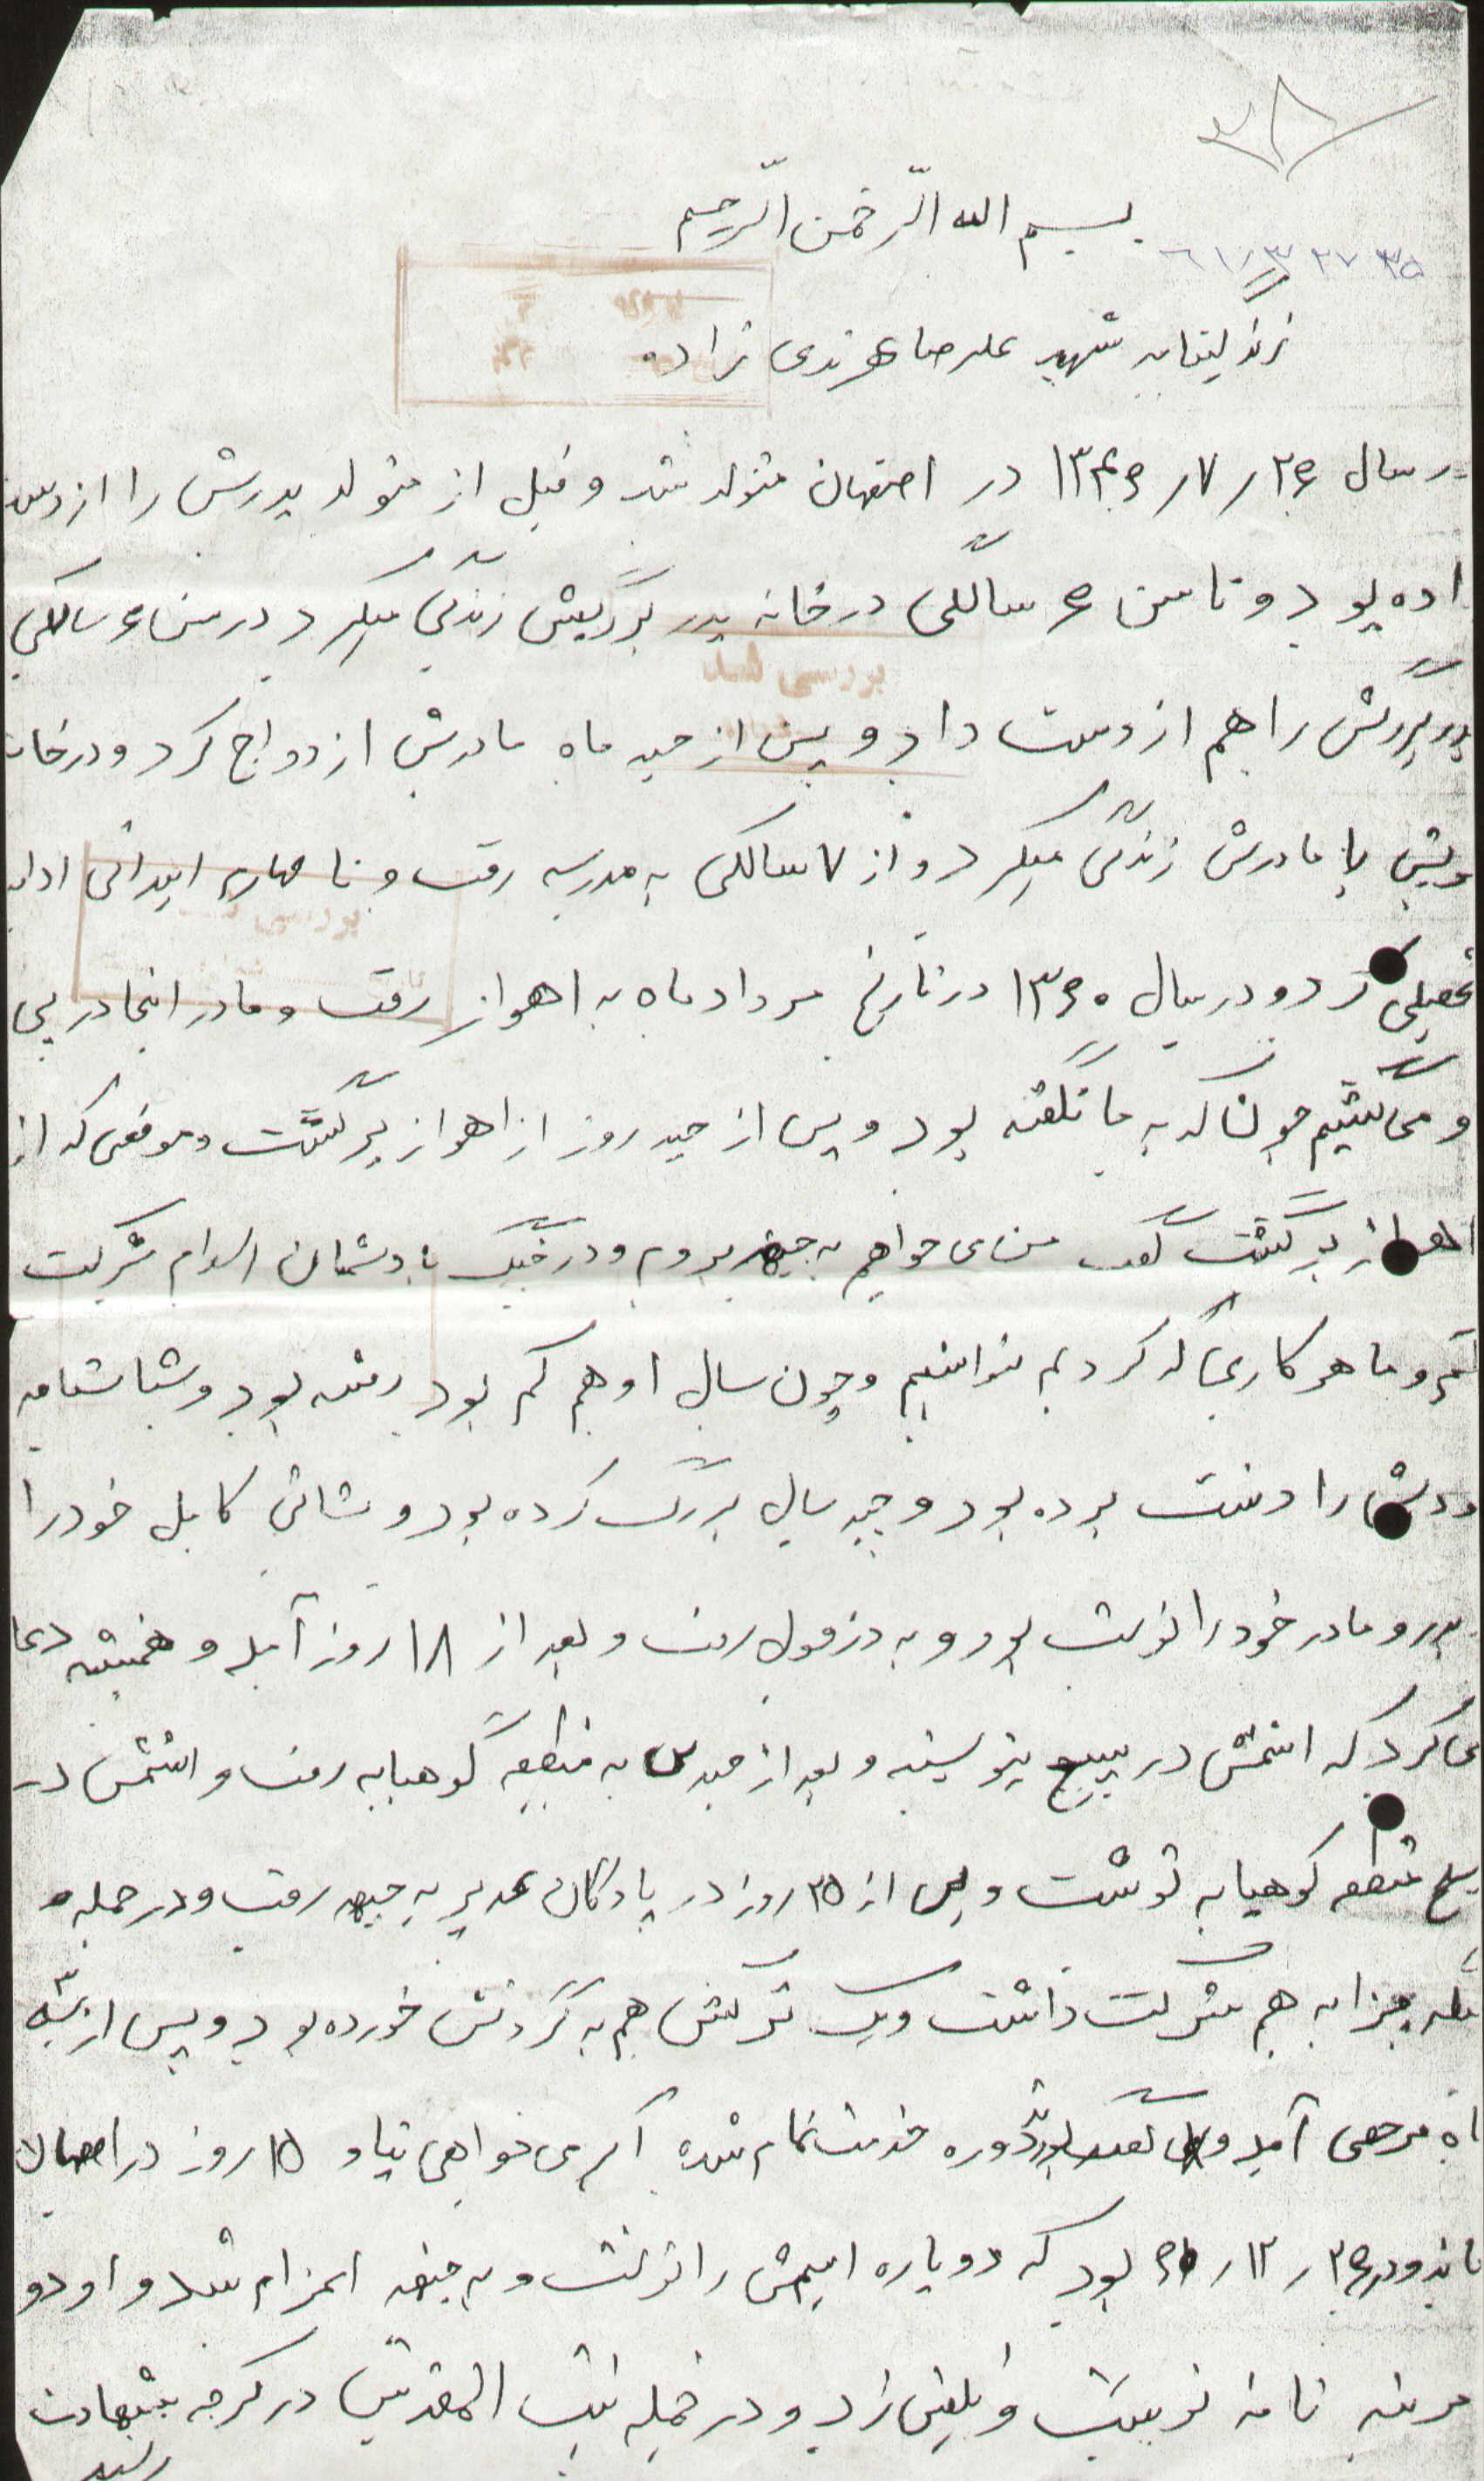 بسم الله الرّحمن الرّحیم
زندگینامه شهید علیرضا هرندی نژاده
در سال ۲۶ ر ۷ ر ۱۳۴۶ در اصفهان متولد شد و قبل از متولد پدرش را از دست
داده بود و تا سن ۶ سالگی در خانه پدر بزرگیش زندگی میکرد در سن ۶ سالگی
پدر بزرگش را هم از دست داد و پس از چند ماه مادرش ازدواج کرد و در خانه
با مادرش زندگی میکرد و از ۷ سالگی به مدرسه رفت و تا چهارم ابتدائی ادامه
تحصیلی کرد و در سال ۱۳۶۰ در تاریخ مرداد ماه به اهواز رفت و ما در اینجا در پی
او می گشتیم چونکه به ما نگفته بود و پس از چند روز از اهواز برگشت و موقعی که از
اهواز برگشت گفت من می خواهم به جبهه بروم و در جنگ با دشمنان اسلام شرکت
کنم و ما هر کاری که کردیم نتوانستیم و چون سال او هم کم بود رفته بود و شناسنامه
خودش را دست برده بود و چند سال بزرگ کرده بود و نشانی کامل خود را
پدر و مادر خود را نوشت بود و به دزفول رفت و بعد از ۱۸ روز آمد و همیشه دعا
می کرد که اسمش در بسیج بنویسند و بعد از چندی به منطقه کوهپایه رفت و اسمش در
بسیج منطقه کوهپایه نوشت و پس از ۲۵ روز در پادگان غدیر به جبهه رفت و در حمله
چزابه هم شرکت داشت و یک ترکش هم به گردنش خورده بود و پس از
ماه مرخصی آمد و گفت دوره خدمت تمام شده اگر می خواهی بیا و ۱۵ روز در اصفهان
ماند و در ۲۶ ر ۱۲ ر ۶۰ بود که دوباره اسمش را نوشت و به جبهه اعزام شد و او دو
مرتبه نامه نوشت و تلفن زد و در حمله بیت المقدس در کرخه بشهادت
رسید